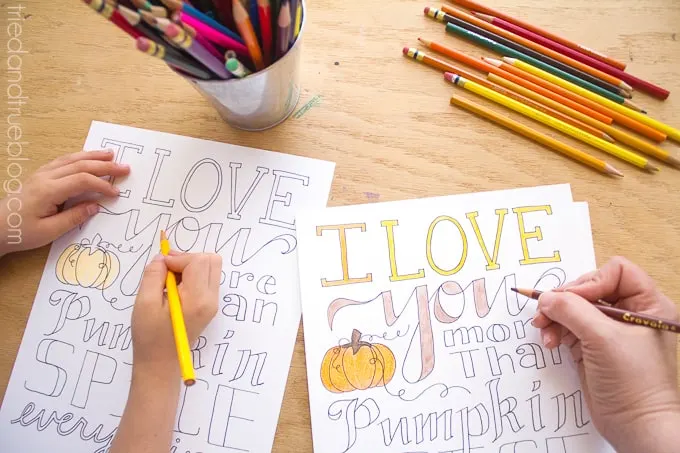 triedandtrueblog.com
I LOVE
You
more
than
Pumpkin
SPICE
every
I LOVE
You
more
Than
Pumpkin
SPICE
Crayola